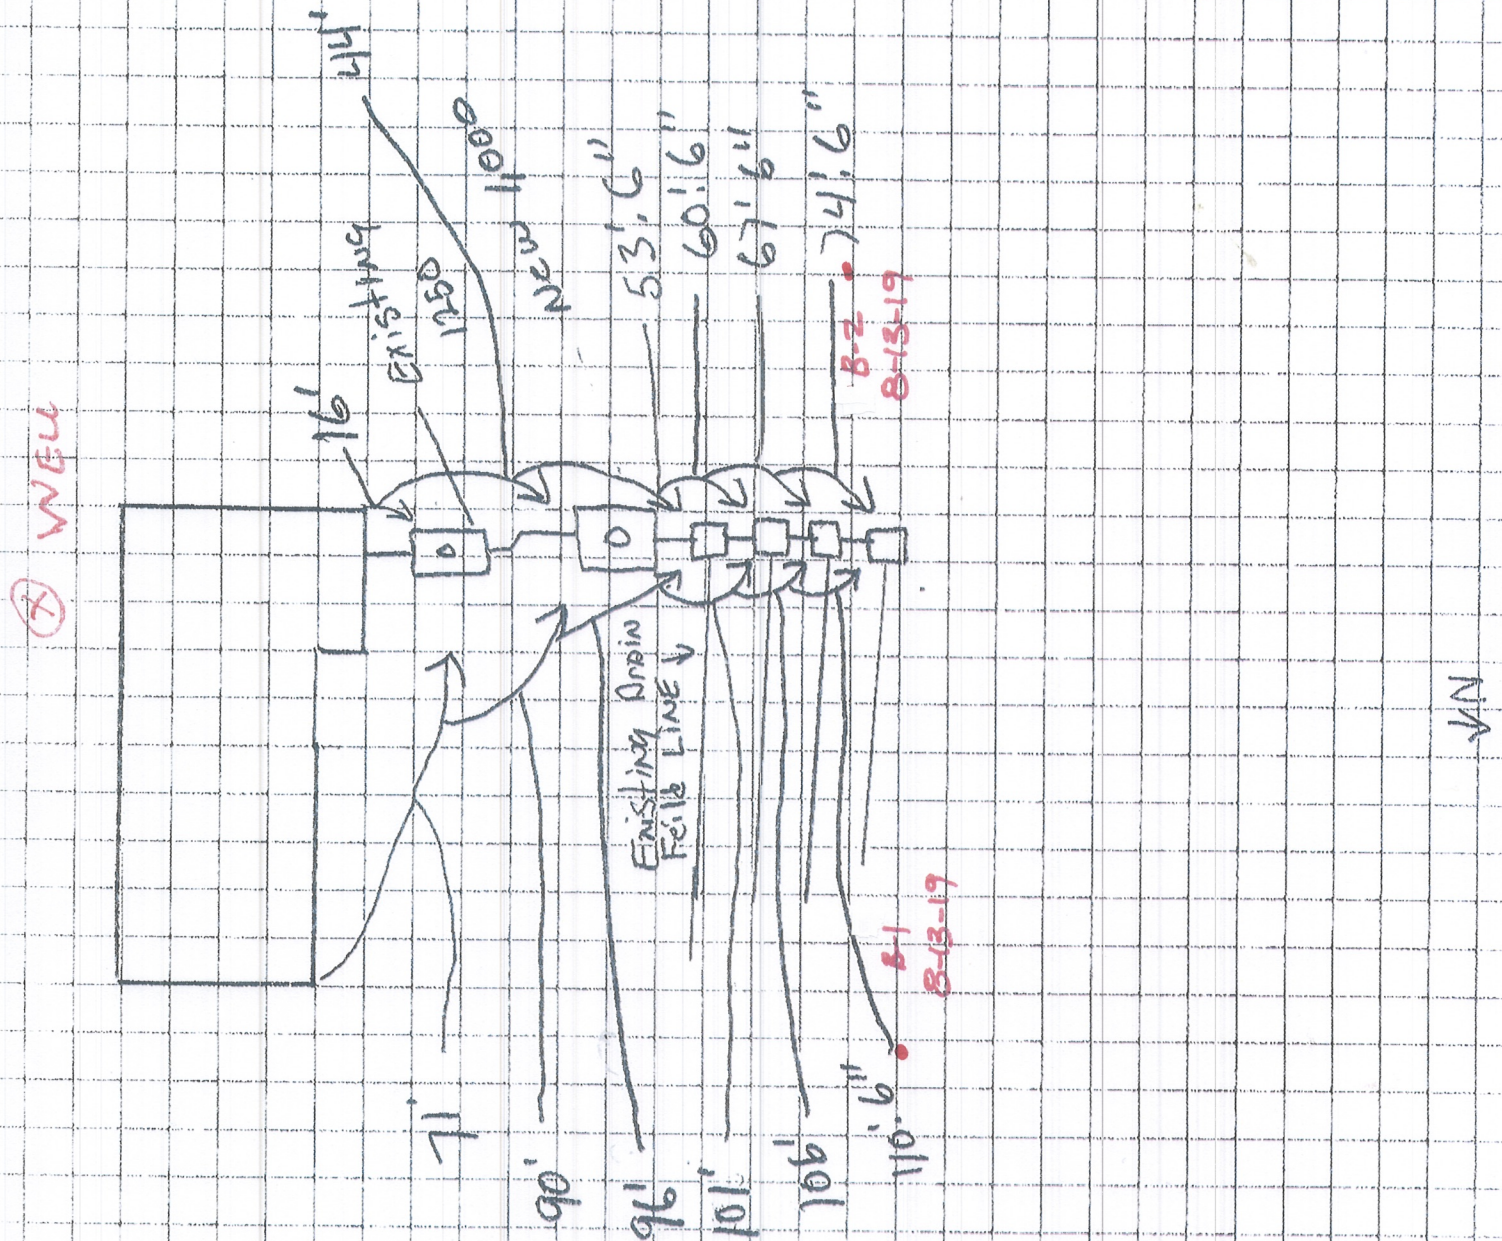 WELL
16'
44'
Existing
1250
New 1000
53'.6"
60'.6"
67'6"
74'.6"
B-2
8-13-19
Existing Drain
Feild LINE
71'
90'
96'
101'
106'
110'.6"
B-1
8-13-19
N